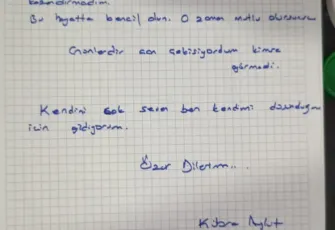 kazandırmadım.
Bu hayatta bencil olun. O zaman mutlu olursunuz
Günlerdir can çekişiyordum kimse
görmedi.
Kendini çok seven ben kendimi düşündüğüm
için gidiyorum.
Özür Dilerim..
Kübra